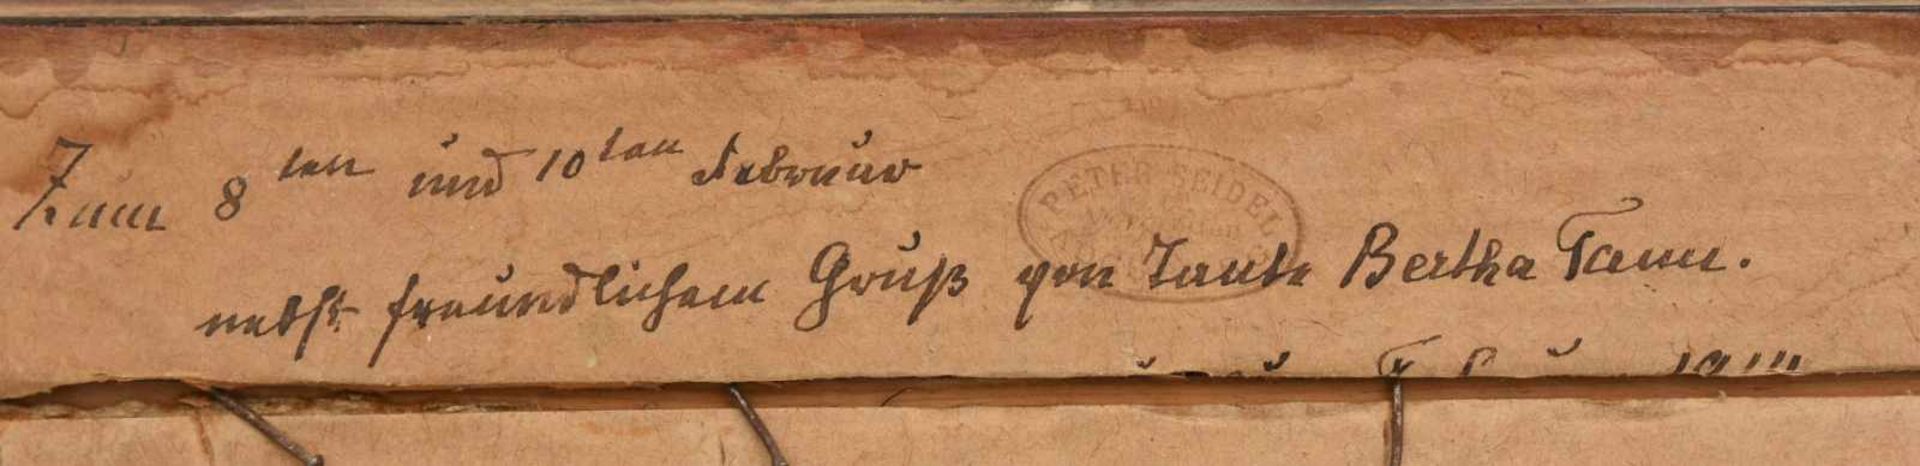 Zum 8ten und 10ten Februar
PETER SEIDEL
nebst freundlichem Gruß von Tante Bertha Tann.